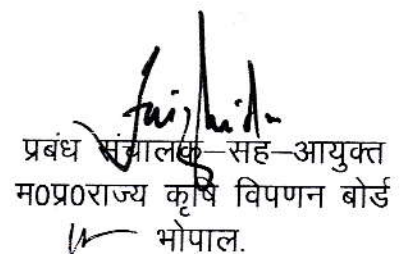 प्रबंध संचालक–सह–आयुक्त
म0प्र0राज्य कृषि विपणन बोर्ड
भोपाल.